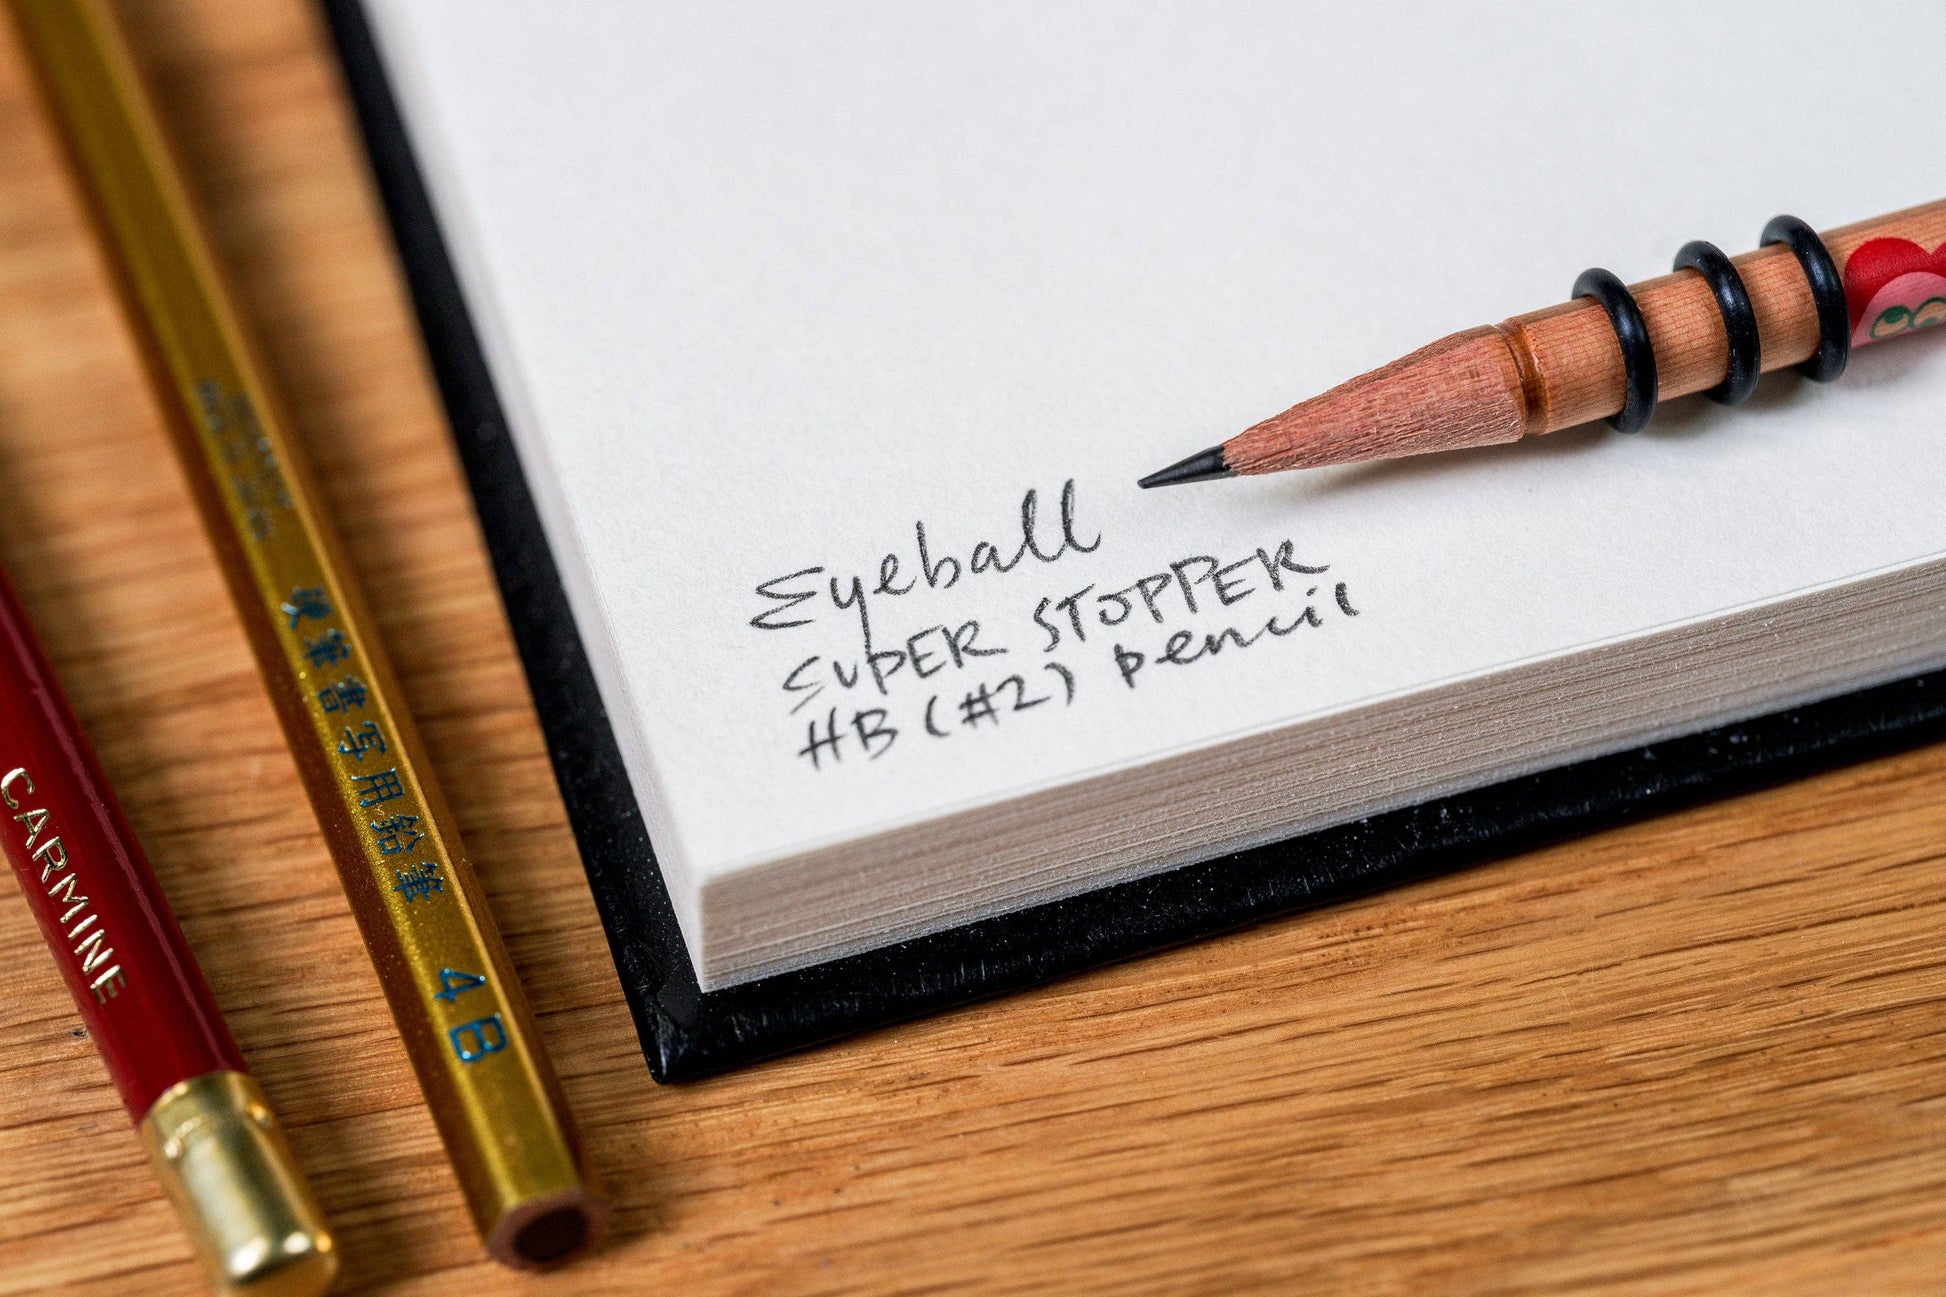 Eyeball
SUPER STOPPER
HB (#2) pencil
硬筆書写用鉛筆 4B
CARMINE